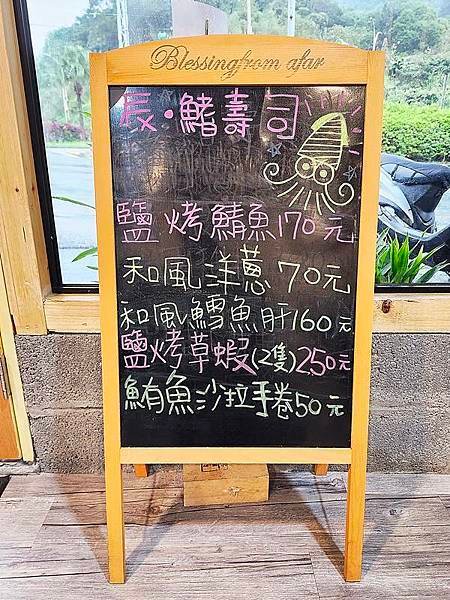 Blessing from afar
辰・鮨壽司
鹽烤鯖魚170元
和風洋蔥70元
和風鱈魚肝160元
鹽烤草蝦(2隻)250元
鮪魚沙拉手卷50元